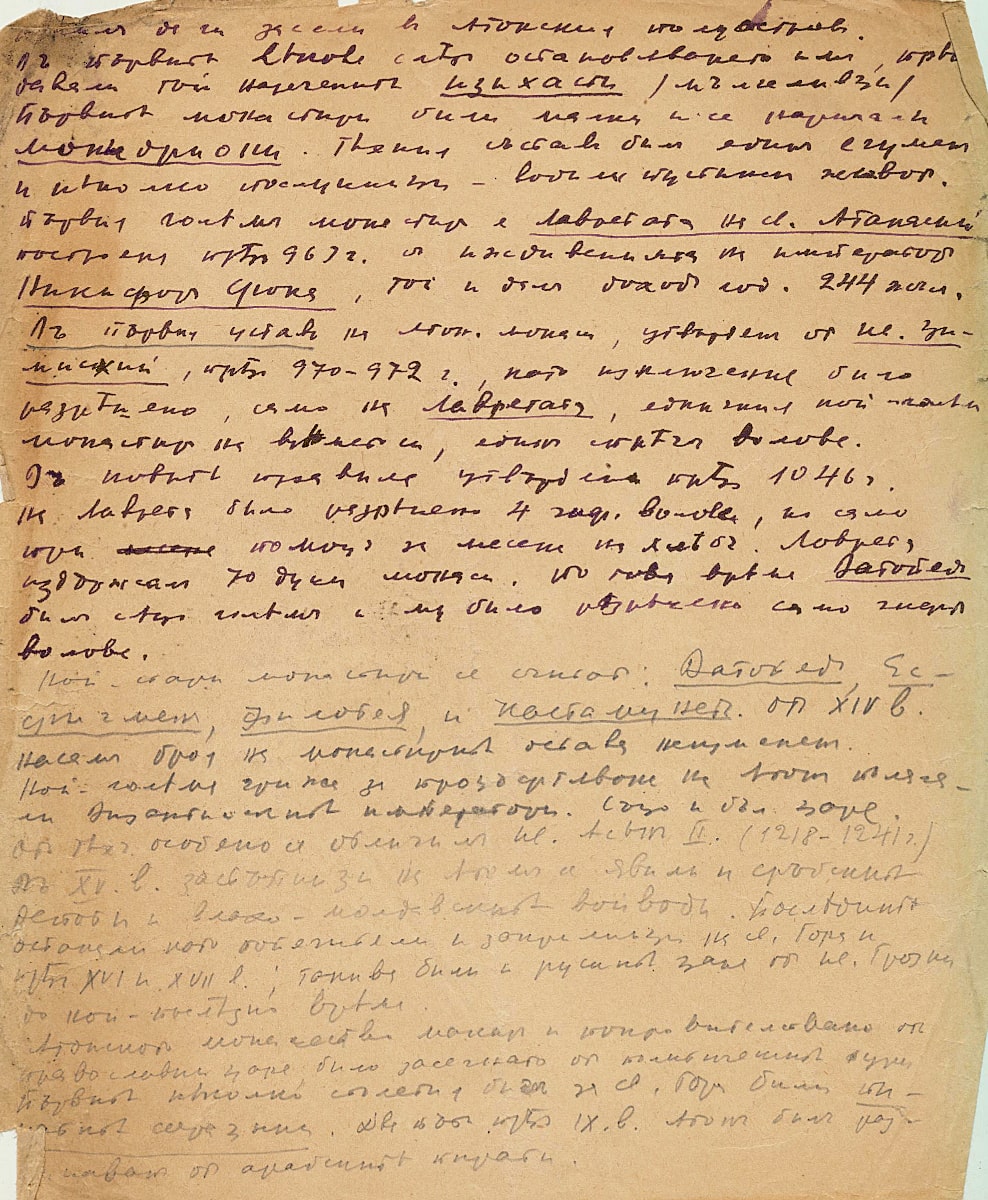 да ги засели в Атонския полуостров.
Въ първитѣ вѣкове слѣдъ остановляването им,
давали той наречени исихасти /мълчаливци/
Първитѣ монастири били малки и се наричали
монидриони. Техния състав бил един егумен
и нѣколко послушници – водили пустинен живот.
Първия голѣм монастир е Лаврата на св. Атанасий
построена прѣз 963 г. с иждивенията на императоръ
Никифоръ Фока, той и дал доход год. 244 жълт.
Въ първия уставъ на Атон. монаси, утвърден от Ив. Ци-
мисхий, прѣз 970-972 г., като изключение било
разрѣшено, само на Лаврата, единия най-голям
монастир на времето си, един впряг волове.
Въ новитѣ правила утвърдени прѣз 1046 г.
на Лаврата било разрѣшено 4 чифт. волове, но само
при помощ за месене на хлѣбъ. Лаврата
издържала 70 души монаси. По това врѣме Ватопед
бил също голѣм и му било разрѣшено само чифт
волове.
Най-стари монастири се считат: Ватопед, Ес-
фигмен, Филотея, и Кастамунет. От XIV в.
насам броя на монастиритѣ остава неизменен.
Най-голѣма грижа за процъвтяване на Атон полага-
ли Византийскитѣ императори. Също и бъл. царе.
От тѣхъ особено се отличил Ив. Асѣнъ II. (1218-1241 г.)
Въ XV. в. застѫпници на Атон се явили и сръбскитѣ
деспоти и влахо-молдавскитѣ войводи. Послѣднитѣ
останали като поборници и закрилници на св. Гора и
прѣз XVI и XVII в.; такива били и рускитѣ царе от Ив. Грозни
до най-послѣдно врѣме.
Атонското монашество макар и покровителствано от
православни царе било засегнато от политическитѣ бури
Първитѣ нѣколко столетия били за св. Гора били
Два пѫти прѣз IX. в. Атон бил раз-
от арабскитѣ пирати.